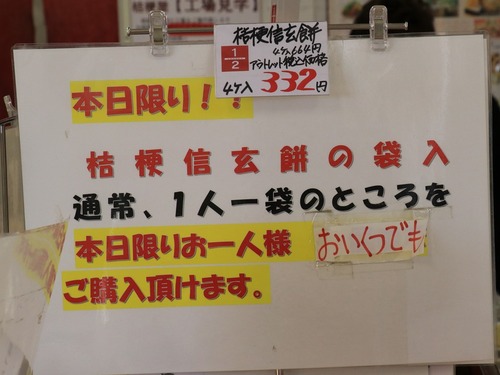 【工場見学】
桔梗信玄餅
1/2
4ケ入664円
アウトレット税込価格
4ケ入 332円
本日限り！！
桔梗信玄餅の袋入
通常、1人一袋のところを
本日限りお一人様 おいくつでも
ご購入頂けます。